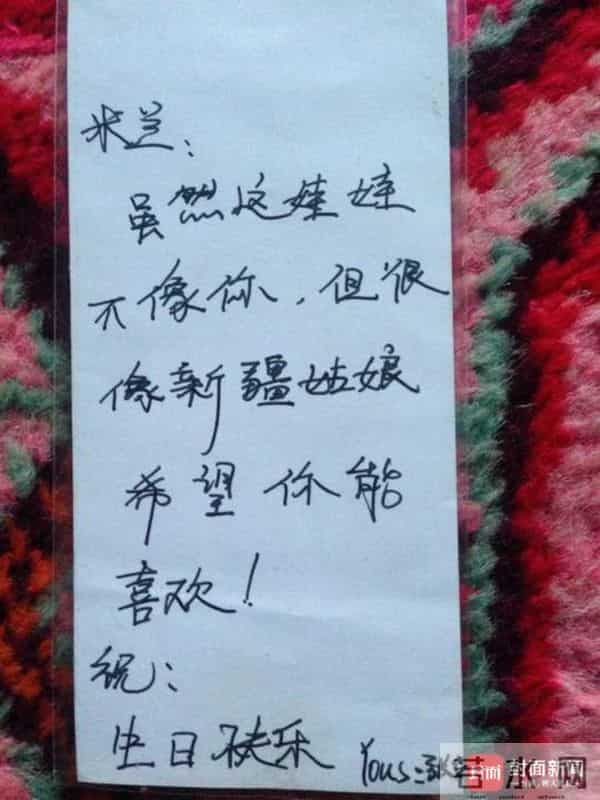 米兰:
虽然这娃娃
不像你,但很
像新疆姑娘
希望你能
喜欢!
祝:
生日快乐
Yous:
封面新闻